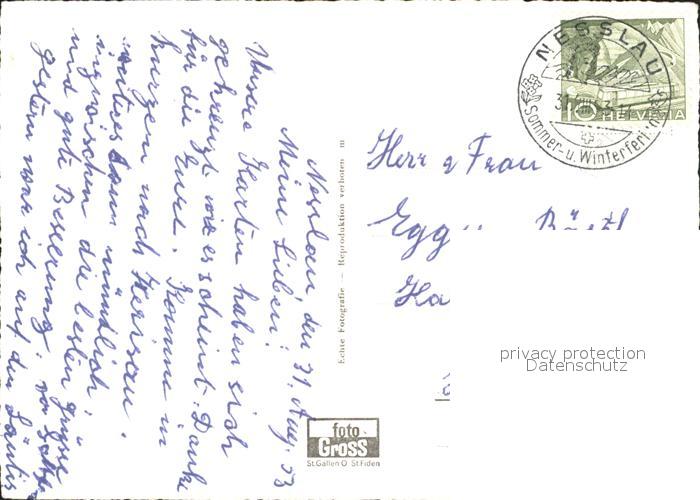 Nesslau, den 31. Aug. 53
Meine Lieben!
Unsere Karten haben sich
gekreuzt wie es scheint. Danke
für die Eure. Komme in
kurzen nach Herisau.
weiteres dann mündlich,
inzwischen die besten Grüsse
und gute Besserung.
Gestern war ich auf den Säntis
Echte Fotografie — Reproduktion verboten
foto
Gross
St.Gallen O St.Fiden
NESSLAU
Sommer- u. Winterferien
10 HELVETIA
Herr & Frau
Egg
Ha
privacy protection
Datenschutz